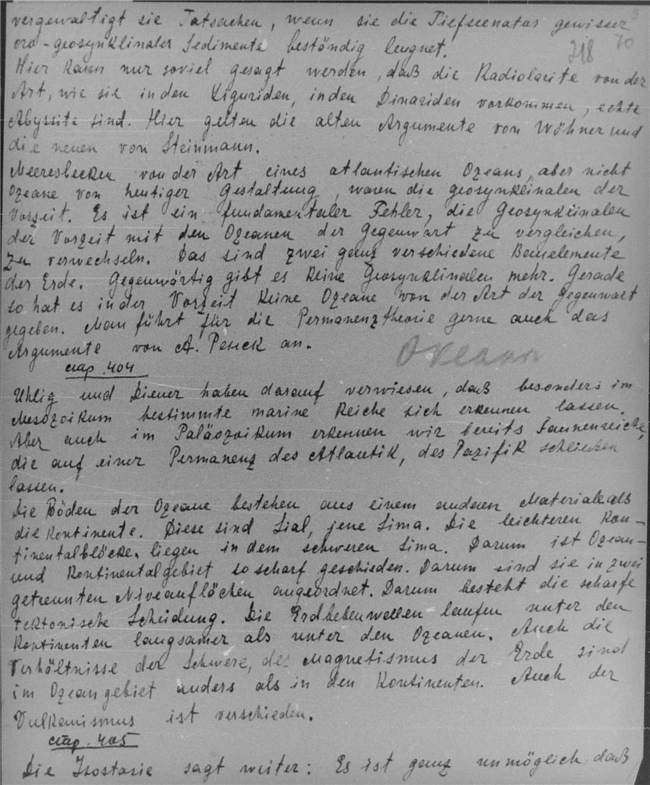 vergewaltigt sie Tatsachen, wenn sie die Tiefseenatur gewisser
oro-geosynklinaler Sedimente beständig leugnet.
718 70
Hier kann nur soviel gesagt werden, daß die Radiolarite von der
Art, wie sie in den Liguriden, in den Dinariden vorkommen, echte
Abyssite sind. Hier gelten die alten Argumente von Wöhner und
die neuen von Steinmann.
Meeresbecken von der Art eines atlantischen Ozeans, aber nicht
Ozeane von heutiger Gestaltung, waren die geosynklinalen der
Vorzeit. Es ist ein fundamentaler Fehler, die Geosynklinalen
der Vorzeit mit den Ozeanen der Gegenwart zu vergleichen,
zu verwechseln. Das sind zwei ganz verschiedene Bauelemente
der Erde. Gegenwärtig gibt es keine Geosynklinalen mehr. Gerade
so hat es in der Vorzeit keine Ozeane von der Art der Gegenwart
gegeben. Man führt für die Permanenztheorie gerne auch das
Argumente von A. Penck an.
стр. 404
Uhlig und Diener haben darauf verwiesen, daß besonders im
Mesozoikum bestimmte marine Reiche sich erkennen lassen.
Aber auch im Paläozoikum erkennen wir bereits Faunenreiche,
die auf einer Permanenz des Atlantik, des Pazifik schließen
lassen.
Die Böden der Ozeane bestehen aus einem anderen Materiale als
die Kontinente. Diese sind Sial, jene Sima. Die leichteren Kon-
tinentalblöcke liegen in dem schweren Sima. Darum ist Ozean-
und Kontinentalgebiet so scharf geschieden. Darum sind sie in zwei
getrennten Niveauflöchen angeordnet. Darum besteht die scharfe
tektonische Scheidung. Die Erdbebenwellen laufen unter den
Kontinenten langsamer als unter den Ozeanen. Auch die
Verhältnisse der Schwere, des Magnetismus der Erde sind
im Ozeangebiet anders als in den Kontinenten. Auch der
Vulkanismus ist verschieden.
стр. 405
Die Isostasie sagt weiter: Es ist ganz unmöglich, daß